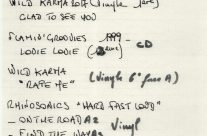 WILD KARMA 2017 (Vinyle
GLAD TO SEE YOU
FLAMIN' GROOVIES 1999 - CD
LOUIE LOUIE (
WILD KARMA (Vinyle 6" face A)
"RAPE ME"
RHINOSONICS "HARD FAST LOUD"
- ON THE ROAD A2 Vinyl
- FIND THE WAY